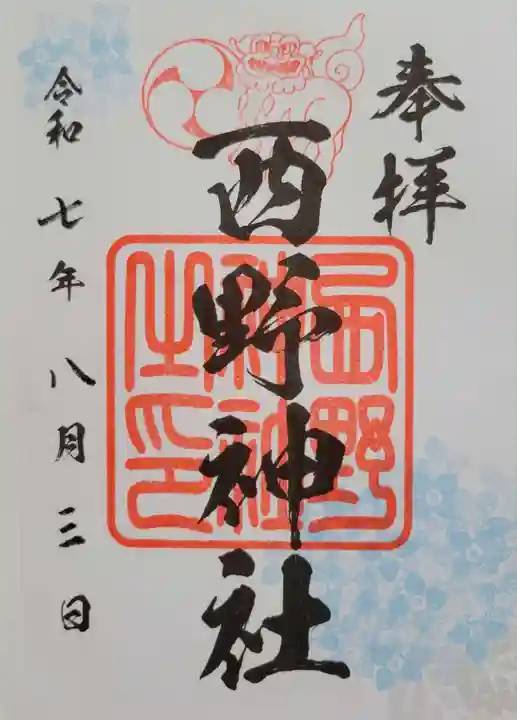 奉拝
西野神社
西野
神社
之印
令和七年八月三日